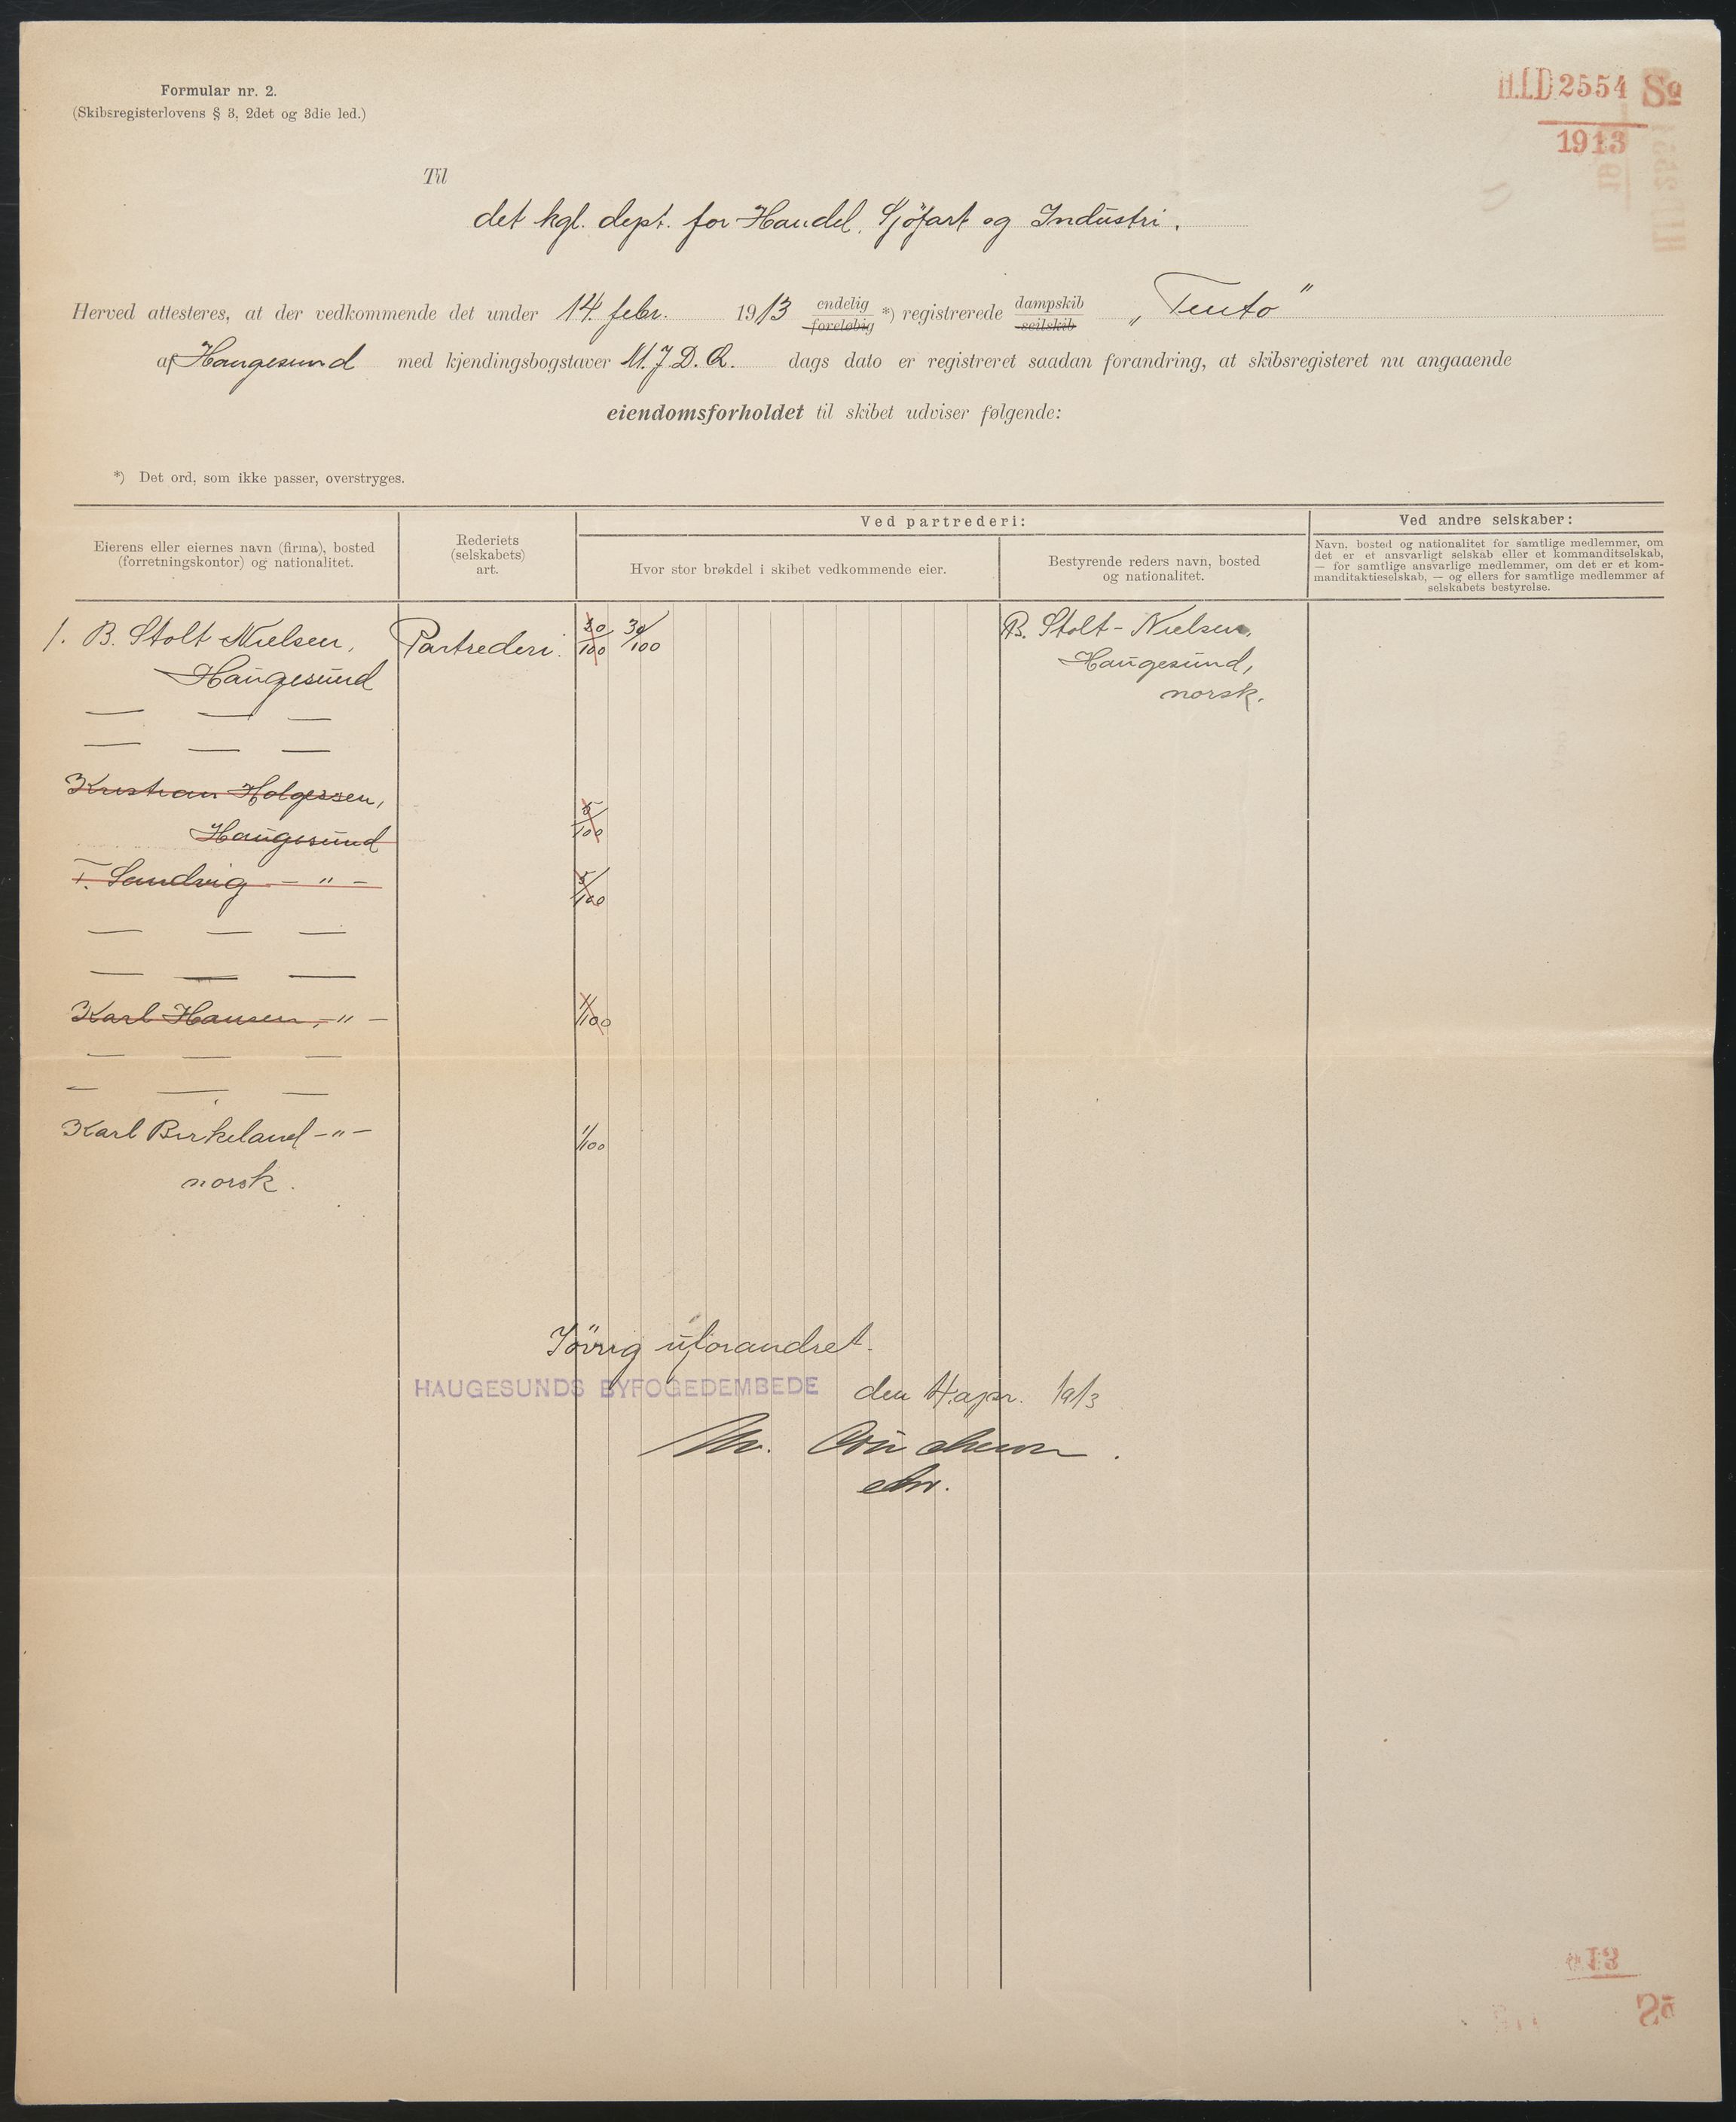 Formular nr. 2.
(Skibsregisterlovens § 3, 2det og 3die led.)
H.I.D 2554 Sø
1913
Til
det kgl. dept. for Handel, Sjöfart og Industri.
Herved attesteres, at der vedkommende det under 14. febr. 1913 endelig foreløbig *) registrerede dampskib seilskib „Tento"
af Haugesund med kjendingsbogstaver M. J. D. Q. dags dato er registreret saadan forandring, at skibsregisteret nu angaaende
eiendomsforholdet til skibet udviser følgende:
*) Det ord, som ikke passer, overstryges.
Eierens eller eiernes navn (firma), bosted
(forretningskontor) og nationalitet.
Rederiets
(selskabets)
art.
Ved partrederi:
Hvor stor brøkdel i skibet vedkommende eier.
Bestyrende reders navn, bosted
og nationalitet.
Ved andre selskaber:
Navn, bosted og nationalitet for samtlige medlemmer, om
det er et ansvarligt selskab eller et kommanditselskab,
— for samtlige ansvarlige medlemmer, om det er et kom-
manditaktieselskab, — og ellers for samtlige medlemmer af
selskabets bestyrelse.
1. B. Stolt Nielsen, Partrederi. 20/100 30/100 B. Stolt-Nielsen,
Haugesund Haugesund,
norsk.
— — —
— — —
Kristian Holgersen,
Haugesund 5/100
T. Sandvig - " - 5/100
— — —
— — —
Karl Hansen, - " - 1/100
— — —
— — —
Karl Birkeland - " - 1/100
norsk.
Iövrig uforandret.
HAUGESUNDS BYFOGEDEMBEDE den 4. apr. 1913